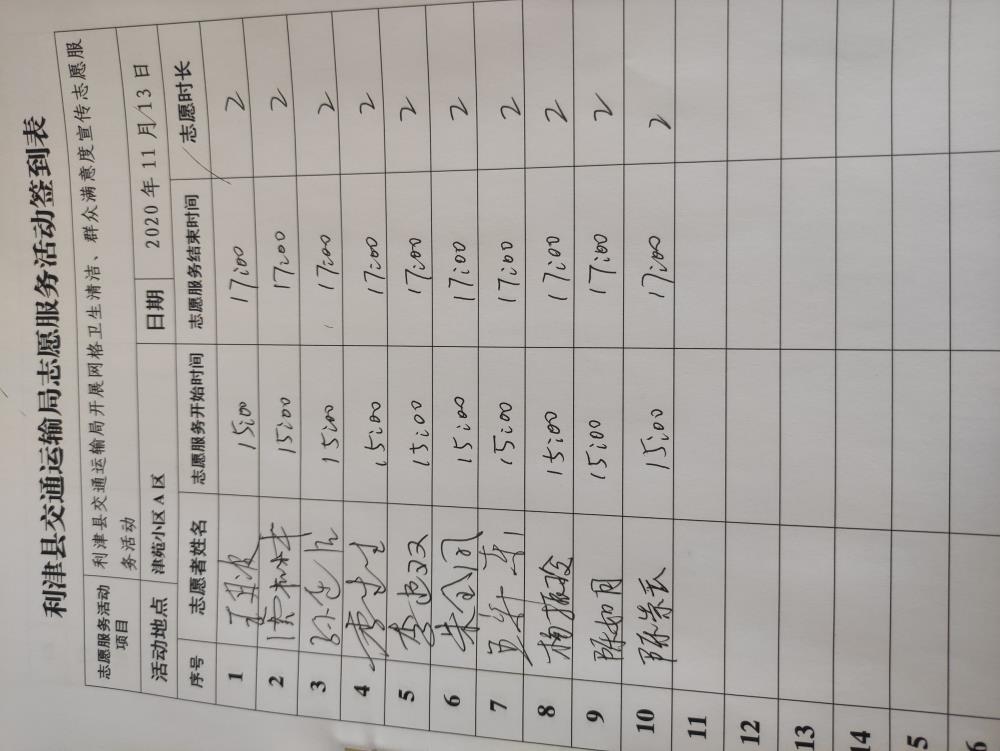 利津县交通运输局志愿服务活动签到表
志愿服务活动项目 利津县交通运输局开展网格卫生清洁、群众满意度宣传志愿服务活动
活动地点 津苑小区A区 日期 2020年11月13日
序号 志愿者姓名 志愿服务开始时间 志愿服务结束时间 志愿时长
1 15:00 17:00 2
2 15:00 17:00 2
3 15:00 17:00 2
4 15:00 17:00 2
5 15:00 17:00 2
6 15:00 17:00 2
7 15:00 17:00 2
8 15:00 17:00 2
9 陈如月 15:00 17:00 2
10 15:00 17:00 2
11
12
13
14
5
6